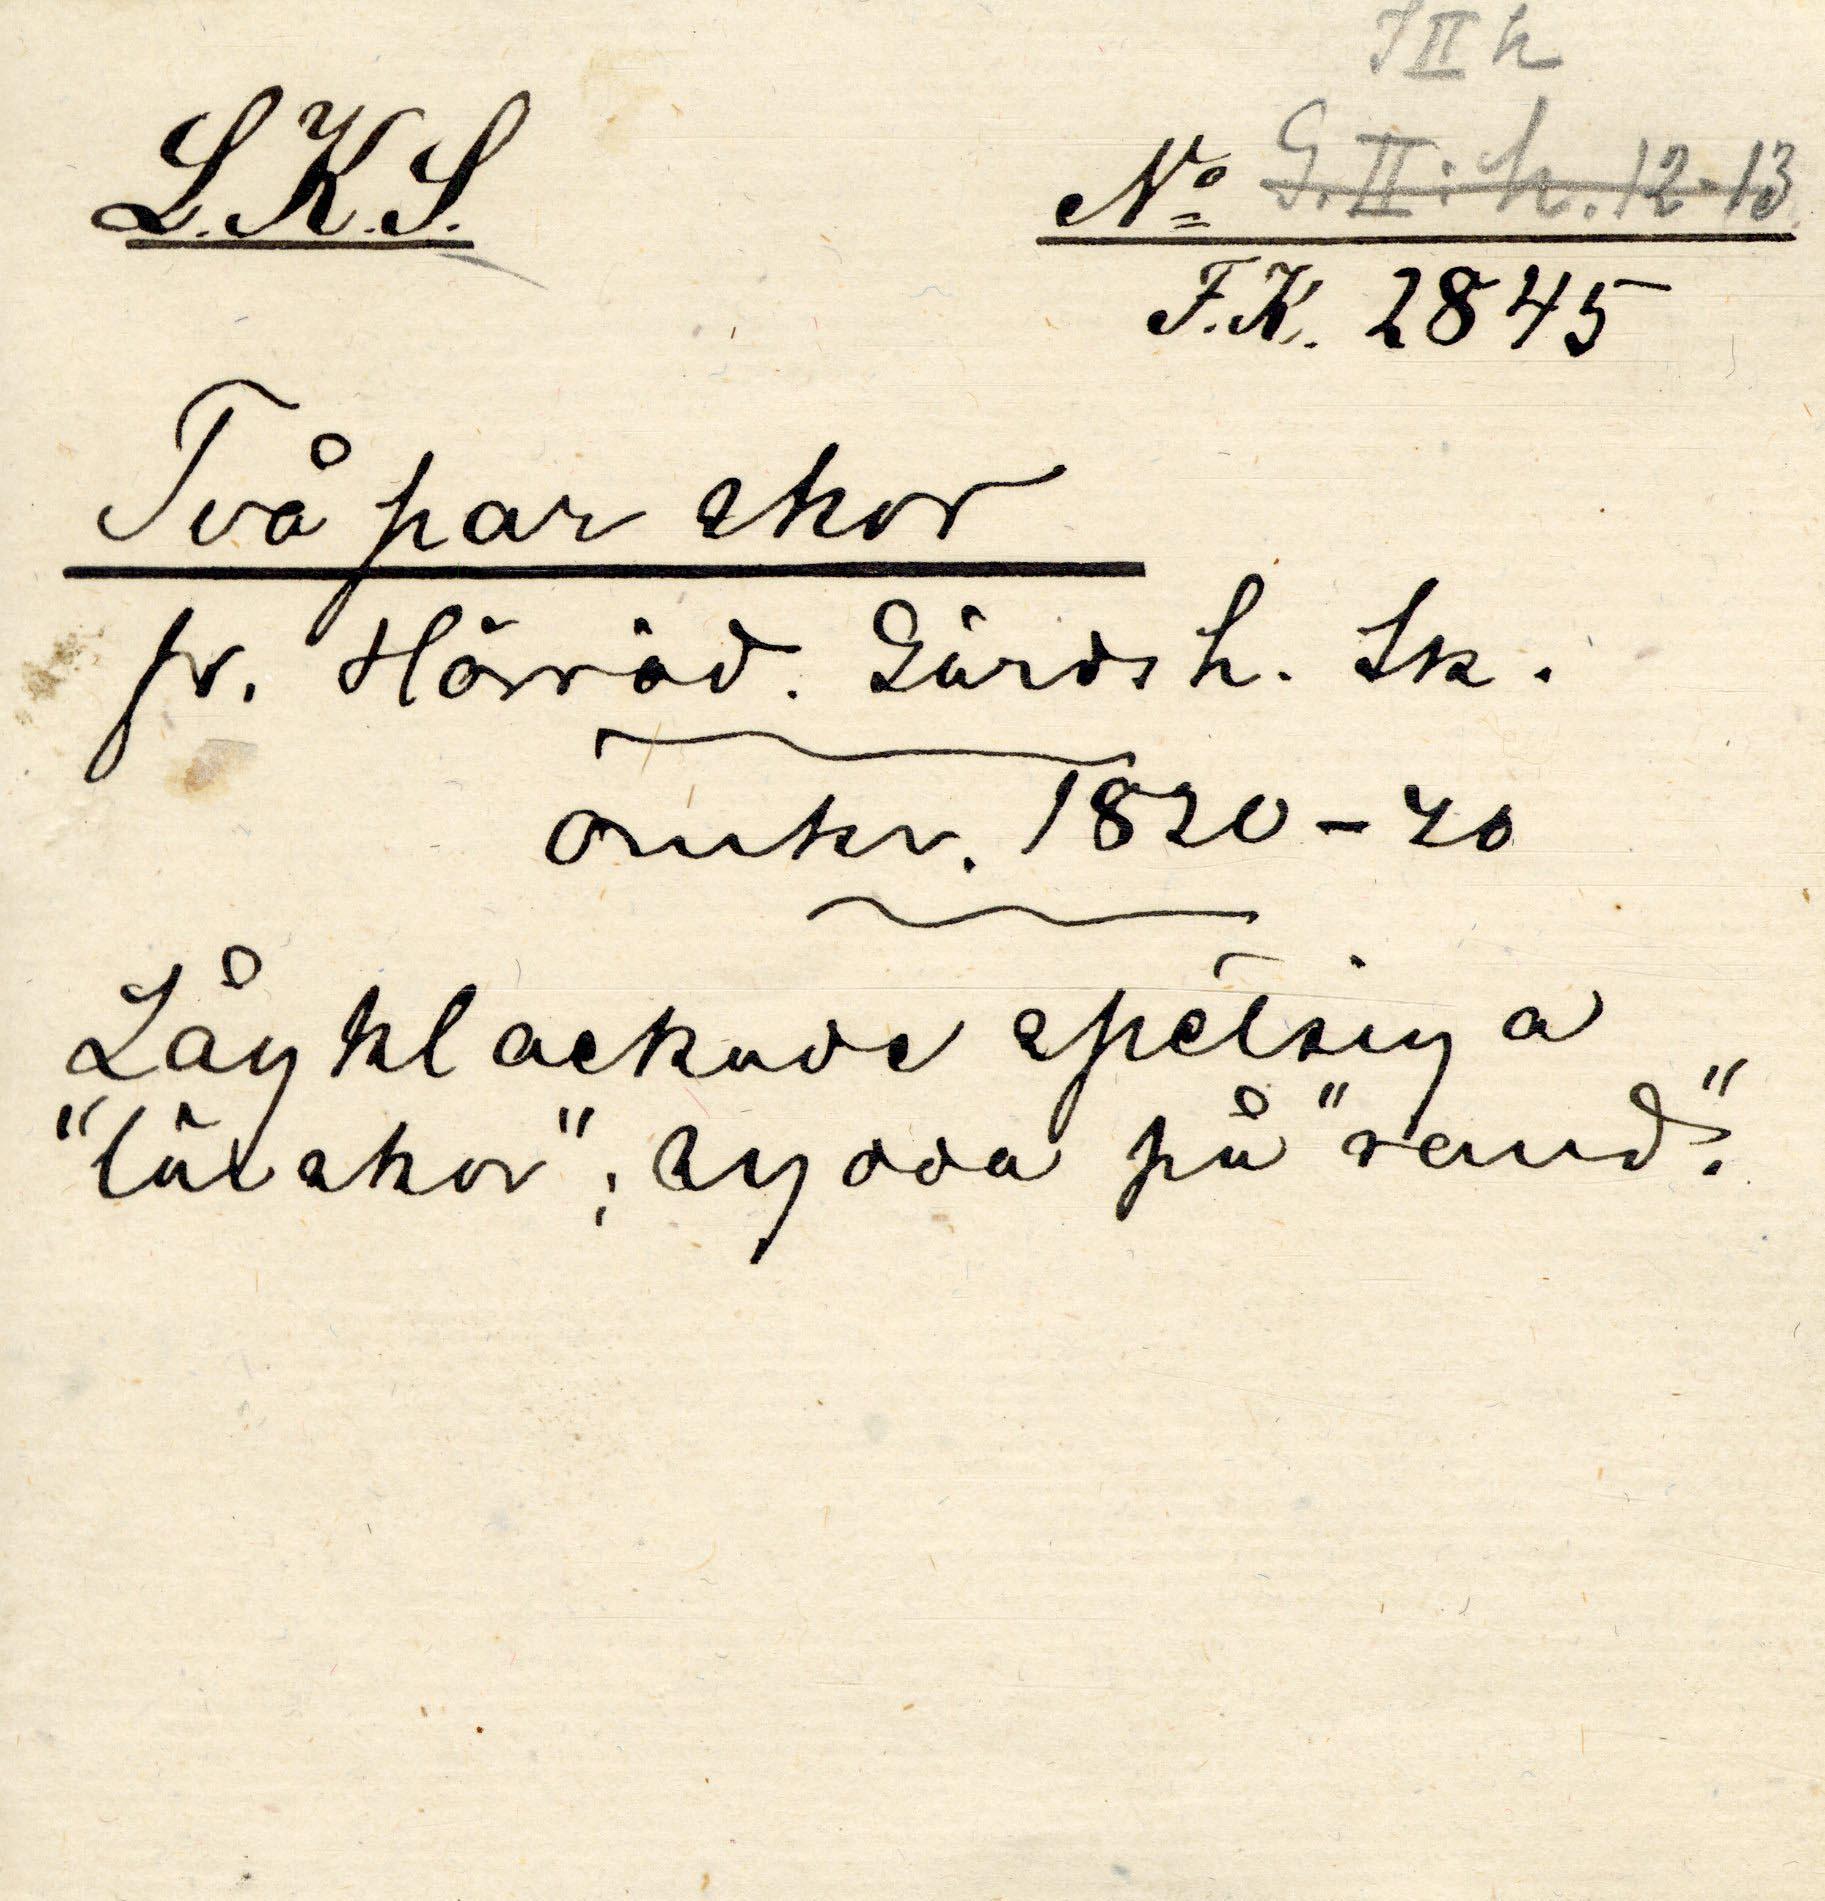 J II h
L.K.S.
No G.II:h.12-13
F.K. 2845
Två par skor
fr. Hörröd. Gärds h. Sk.
Omkr. 1820-40
Lågklackade spetsiga
"lätskor"; sydda på "rand".